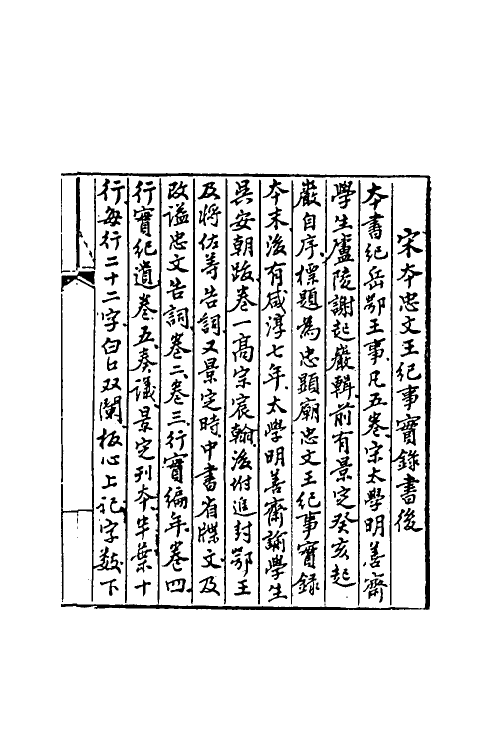 宋本忠文王紀事實錄書後
本書紀岳鄂王事凡五卷宋太學明善齋
學生廬陵謝起巖輯前有景定癸亥起
巖自序標題為忠顯廟忠文王紀事實錄
本末後有咸淳七年太學明善齋諭學生
吳安朝跋卷一高宗宸翰後附進封鄂王
及將佐等告詞又景定時中書省牒文及
改謚忠文告詞卷二卷三行實編年卷四
行實紀遺卷五奏議景定刊本半葉十
行每行二十二字白口双闌板心上記字数下